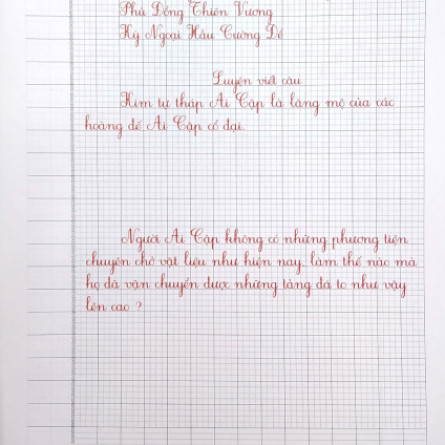 Phù Đổng Thiên Vương
Kỳ Ngoại Hầu Cường Để
Luyện viết câu
Kim tự tháp Ai Cập là lăng mộ của các
hoàng đế Ai Cập cổ đại.
Người Ai Cập không có những phương tiện
chuyên chở vật liệu như hiện nay, làm thế nào mà
họ đã vận chuyển được những tảng đá to như vậy
lên cao ?